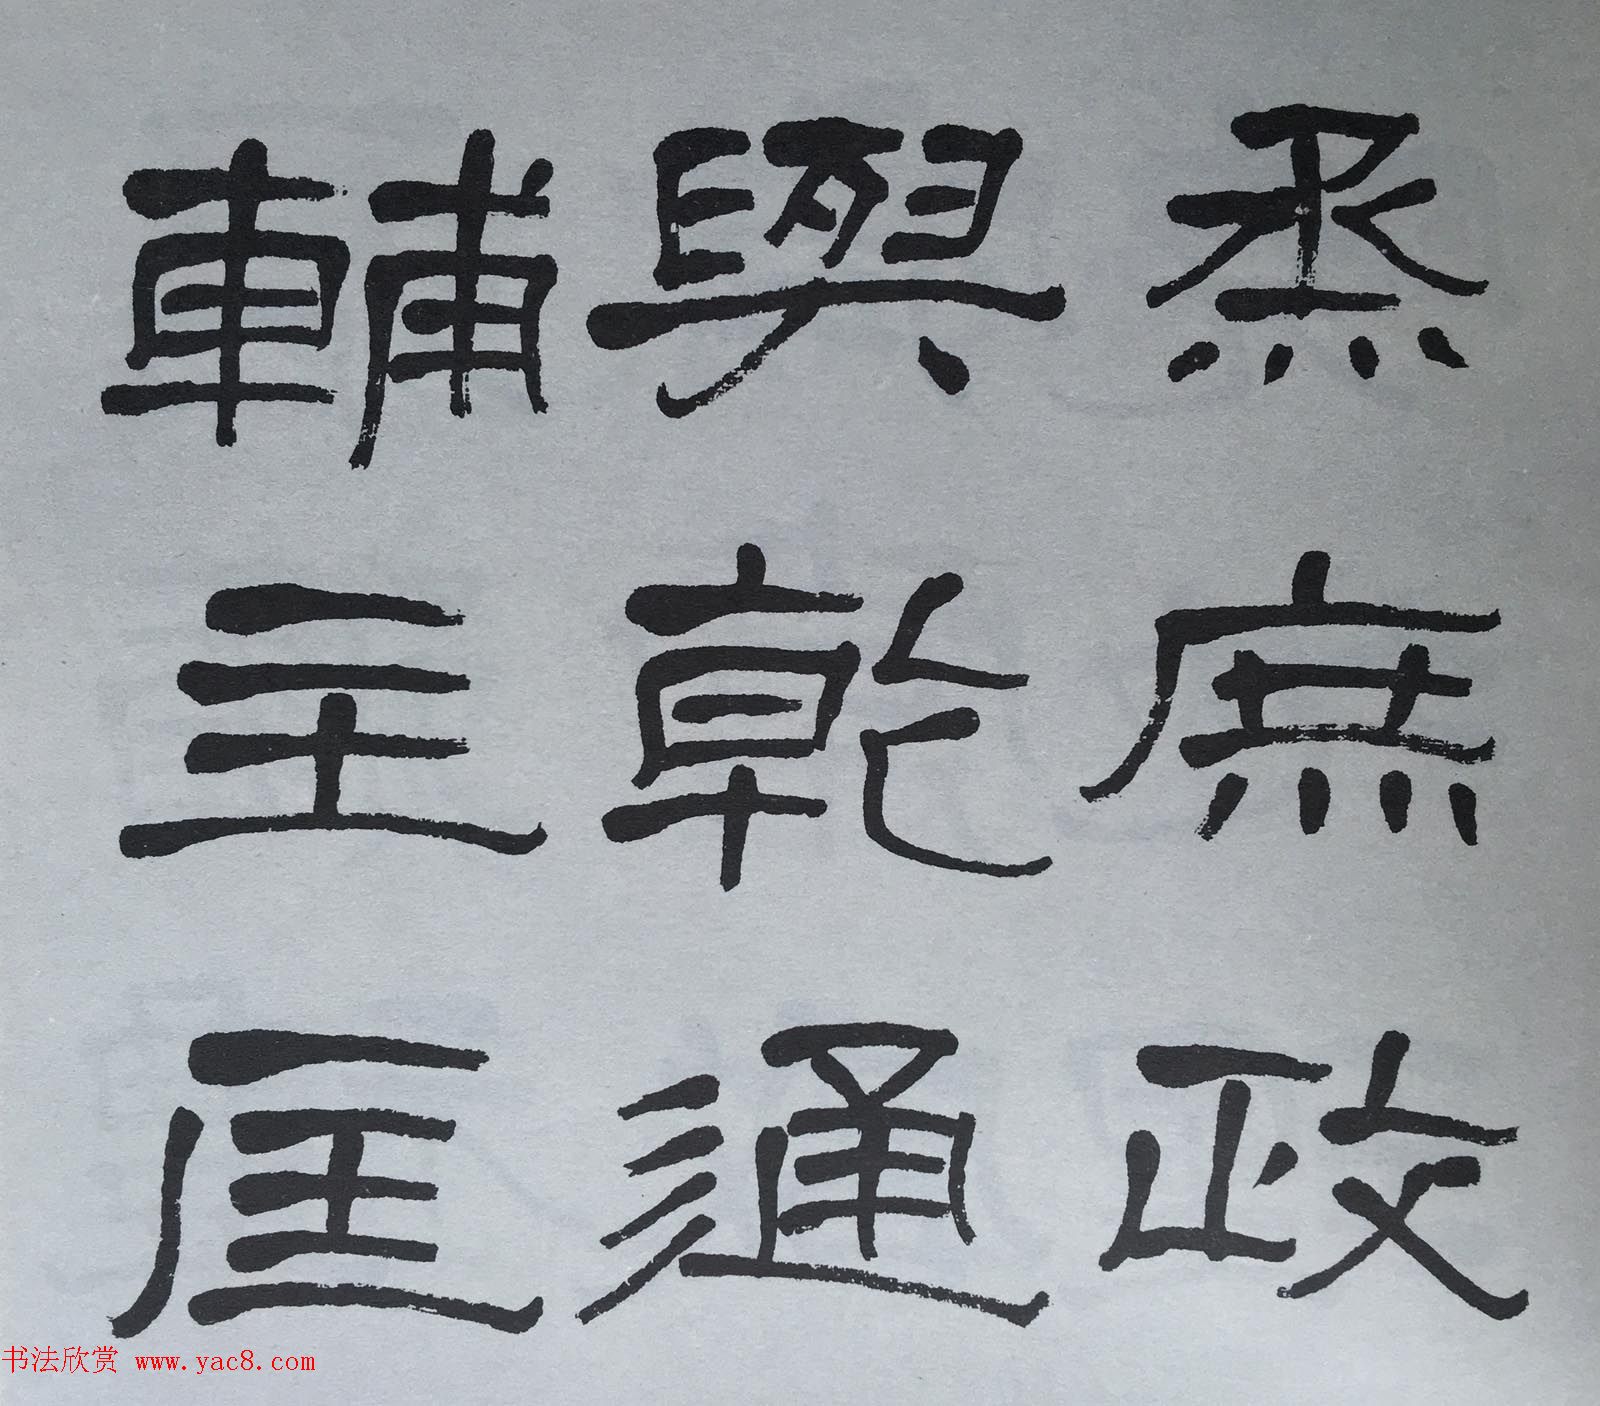 烝庶政
與乾通
輔主匡
书法欣赏 www.yac8.com